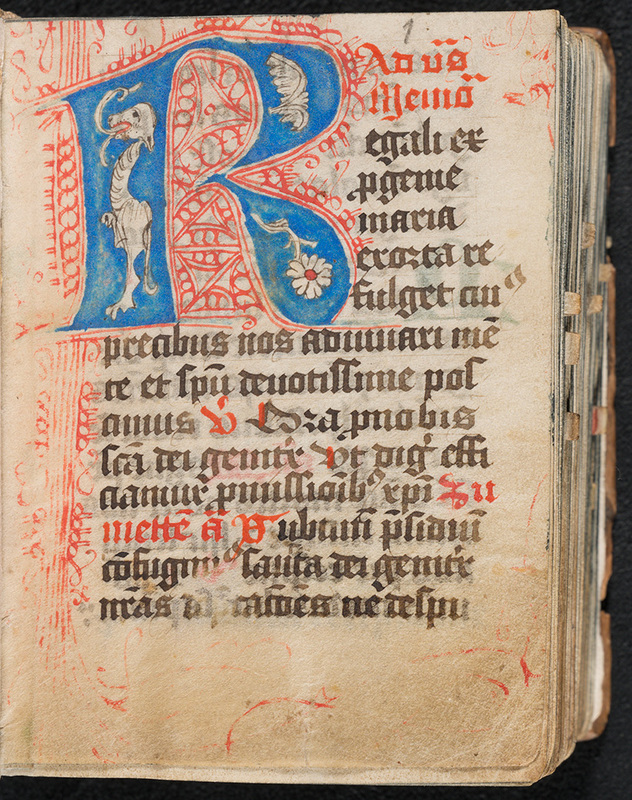 1
Ad vẽs
Memoꝛia
Regali ex
ꝓgenie
maria
exoꝛta re
fulget cuiꝰ
precibus nos adiuuari mẽ
te et ſpũ deuotiſſime poſ
cimus ℣ Oꝛa ꝓ nobis
ſcã dei genitꝛ̃ Vt dig̃ effi
ciamur ꝓmiſſioĩbꝰ xp̃i Su
mettẽ ã S ub tuũ p̃ſidiũ
cõfugimꝰ ſancta dei genitꝛ̃
nr̃as catõẽs ne deſpi